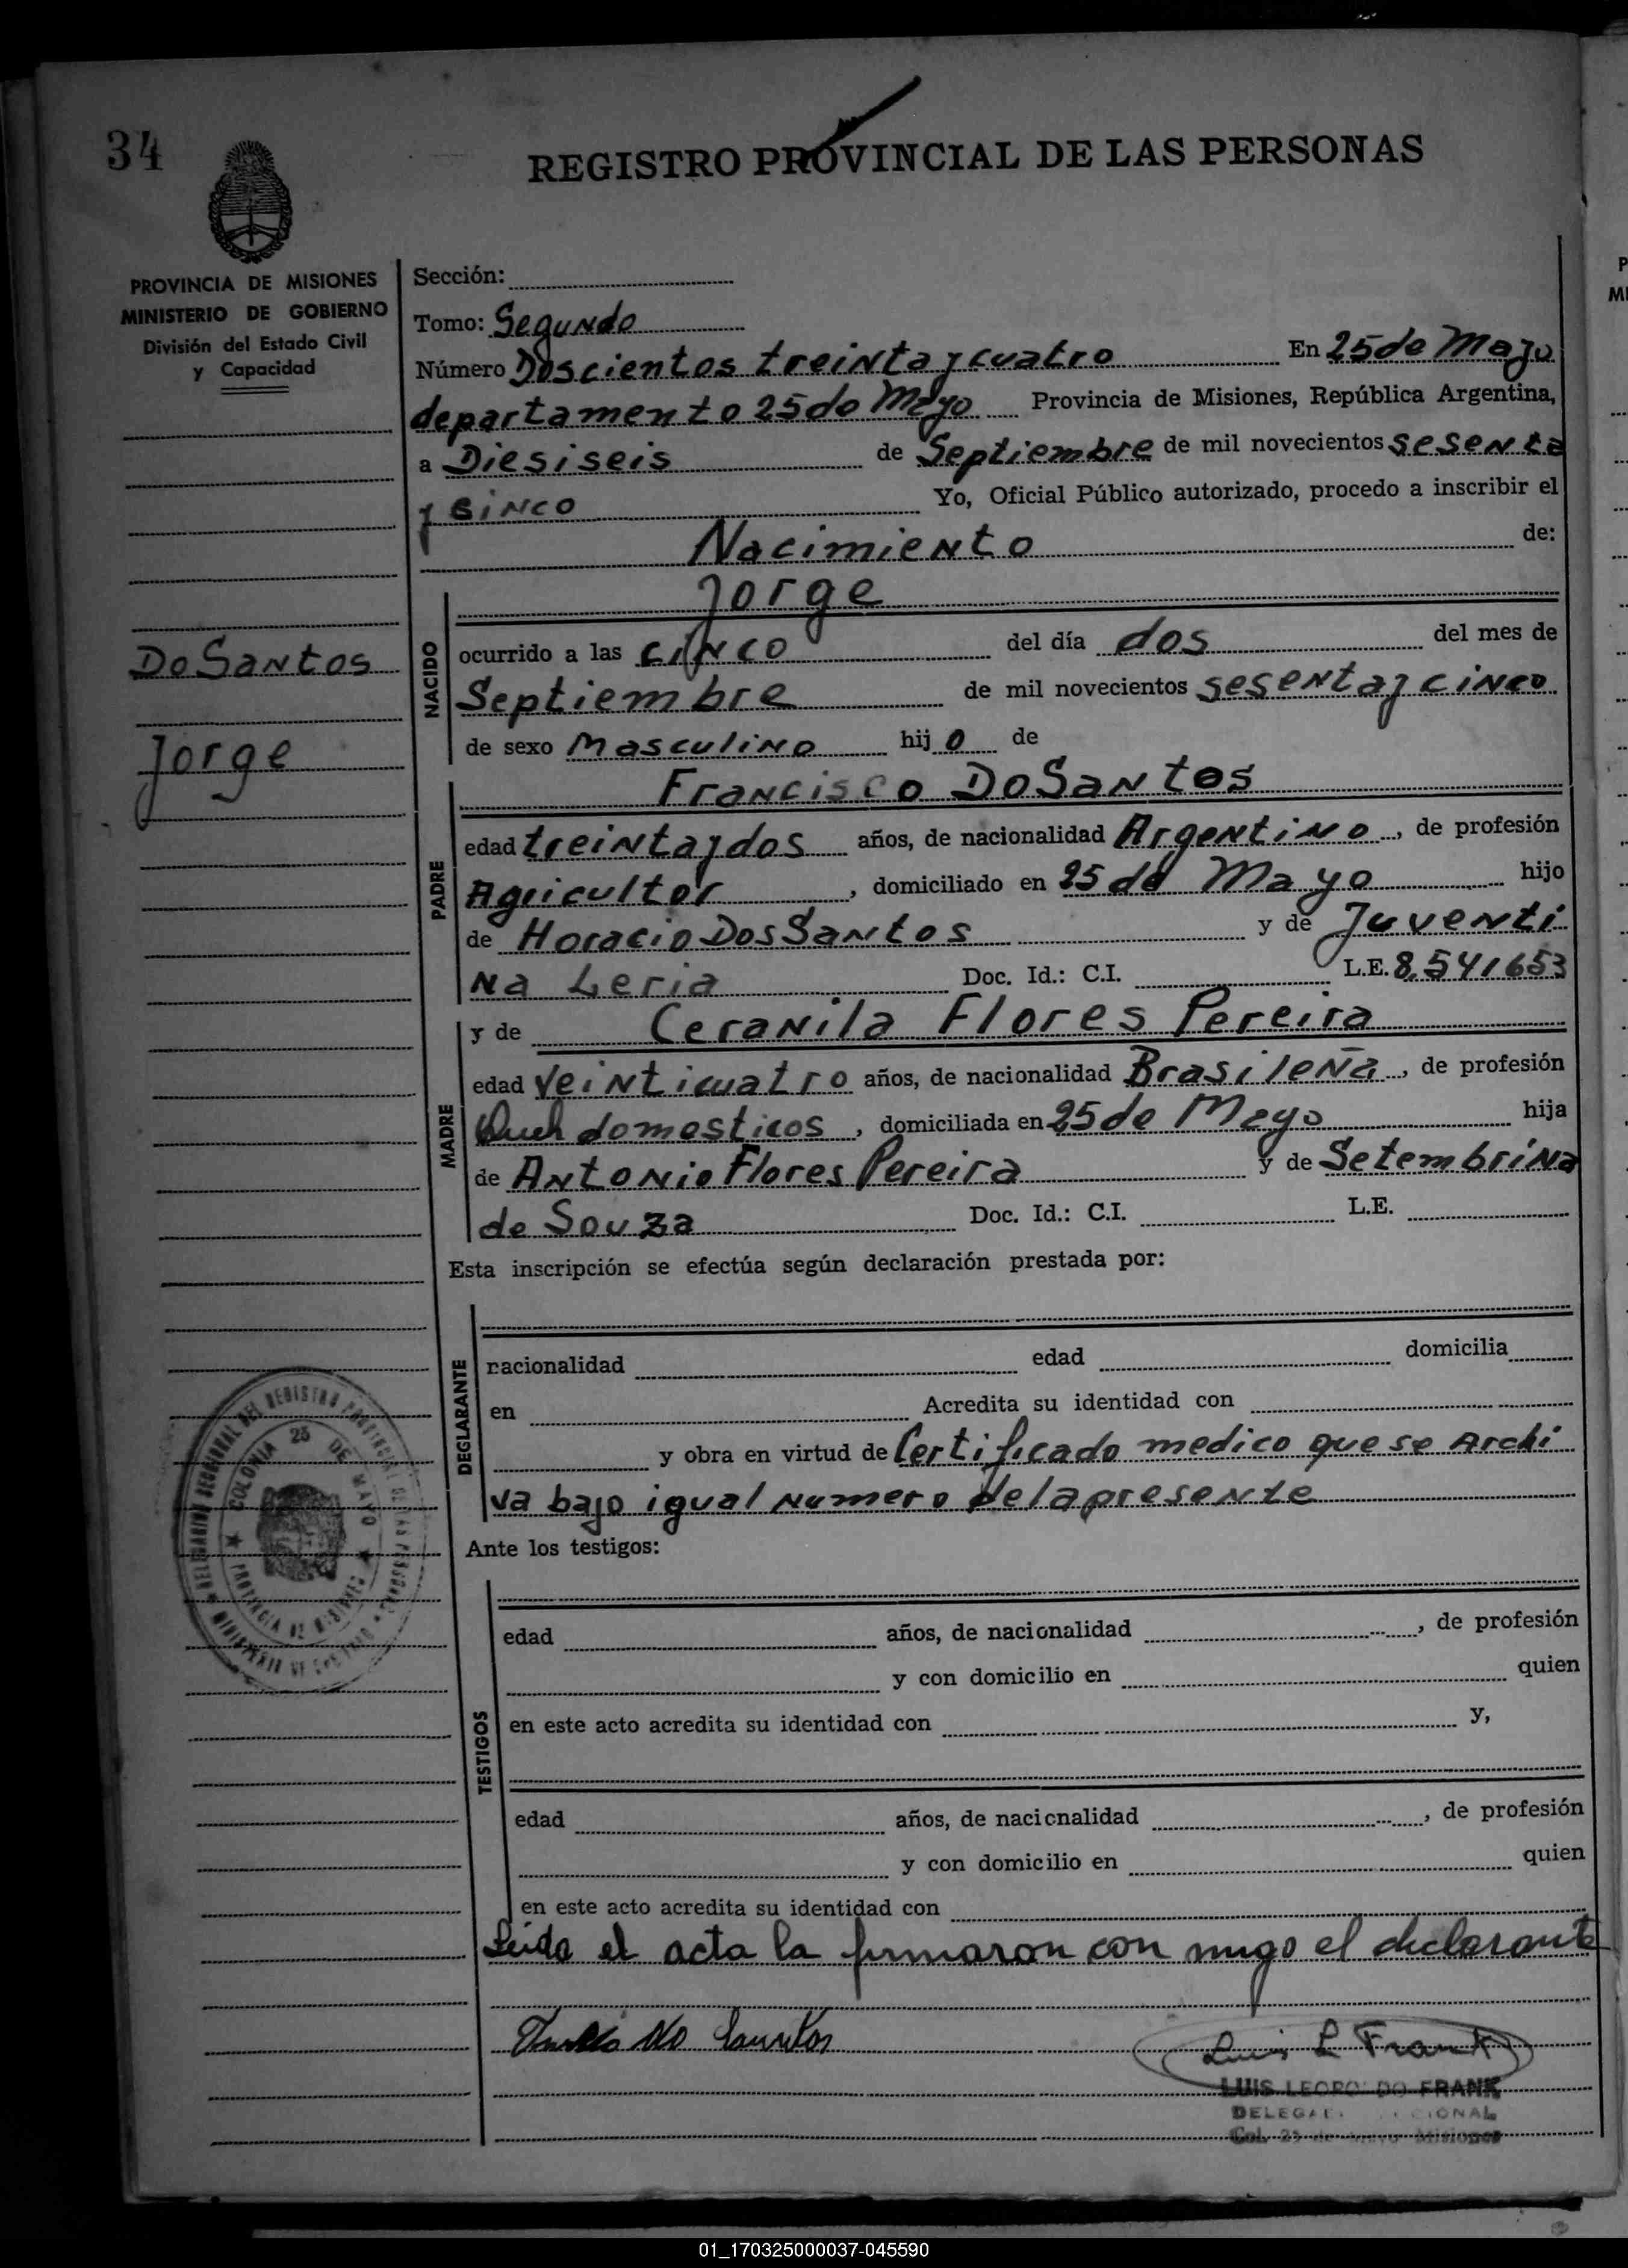 34
REGISTRO PROVINCIAL DE LAS PERSONAS
PROVINCIA DE MISIONES
MINISTERIO DE GOBIERNO
División del Estado Civil
y Capacidad
DoSantos
Jorge
Sección:
Tomo: Segundo
Número Doscientos treinta y cuatro En 25 de Mayo
departamento 25 de Mayo Provincia de Misiones, República Argentina,
a Diesiseis de Septiembre de mil novecientos sesenta
y cinco Yo, Oficial Público autorizado, procedo a inscribir el
Nacimiento de:
Jorge
NACIDO
ocurrido a las cinco del día dos del mes de
Septiembre de mil novecientos sesenta y cinco
de sexo Masculino hijo de
Francisco DoSantos
PADRE
edad treinta y dos años, de nacionalidad Argentino, de profesión
Agricultor, domiciliado en 25 de Mayo hijo
de Horacio DosSantos y de Juventi
na Leria Doc. Id.: C.I. L.E. 8.541653
y de Ceranila Flores Pereira
MADRE
edad Veinticuatro años, de nacionalidad Brasileña, de profesión
domesticos, domiciliada en 25 de Mayo hija
de Antonio Flores Pereira y de Setembrina
de Souza Doc. Id.: C.I. L.E.
Esta inscripción se efectúa según declaración prestada por:
DECLARANTE
nacionalidad edad domicilia
en Acredita su identidad con
y obra en virtud de Certificado medico que se Archi
va bajo igual numero de la presente
Ante los testigos:
TESTIGOS
edad años, de nacionalidad , de profesión
y con domicilio en quien
en este acto acredita su identidad con y,
edad años, de nacionalidad , de profesión
y con domicilio en quien
en este acto acredita su identidad con
Leida el acta la firmaron con migo el declarante
Luis L Frank
LUIS LEOPOLDO FRANK
COLONIA 25 DE MAYO
PROVINCIA DE MISIONES
01_170325000037-045590